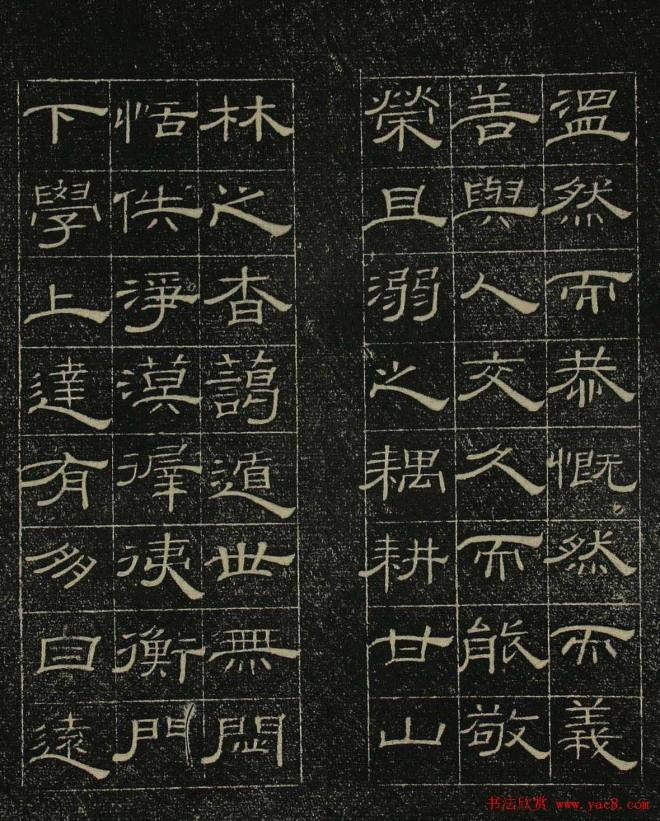 溫然而恭慨然而義
善與人交久而能敬
榮且溺之耦耕甘山
林之杳藹遁世無悶
恬佚淨漠徲衡門
下學上達有朋自遠
书法欣赏 www.yac8.com